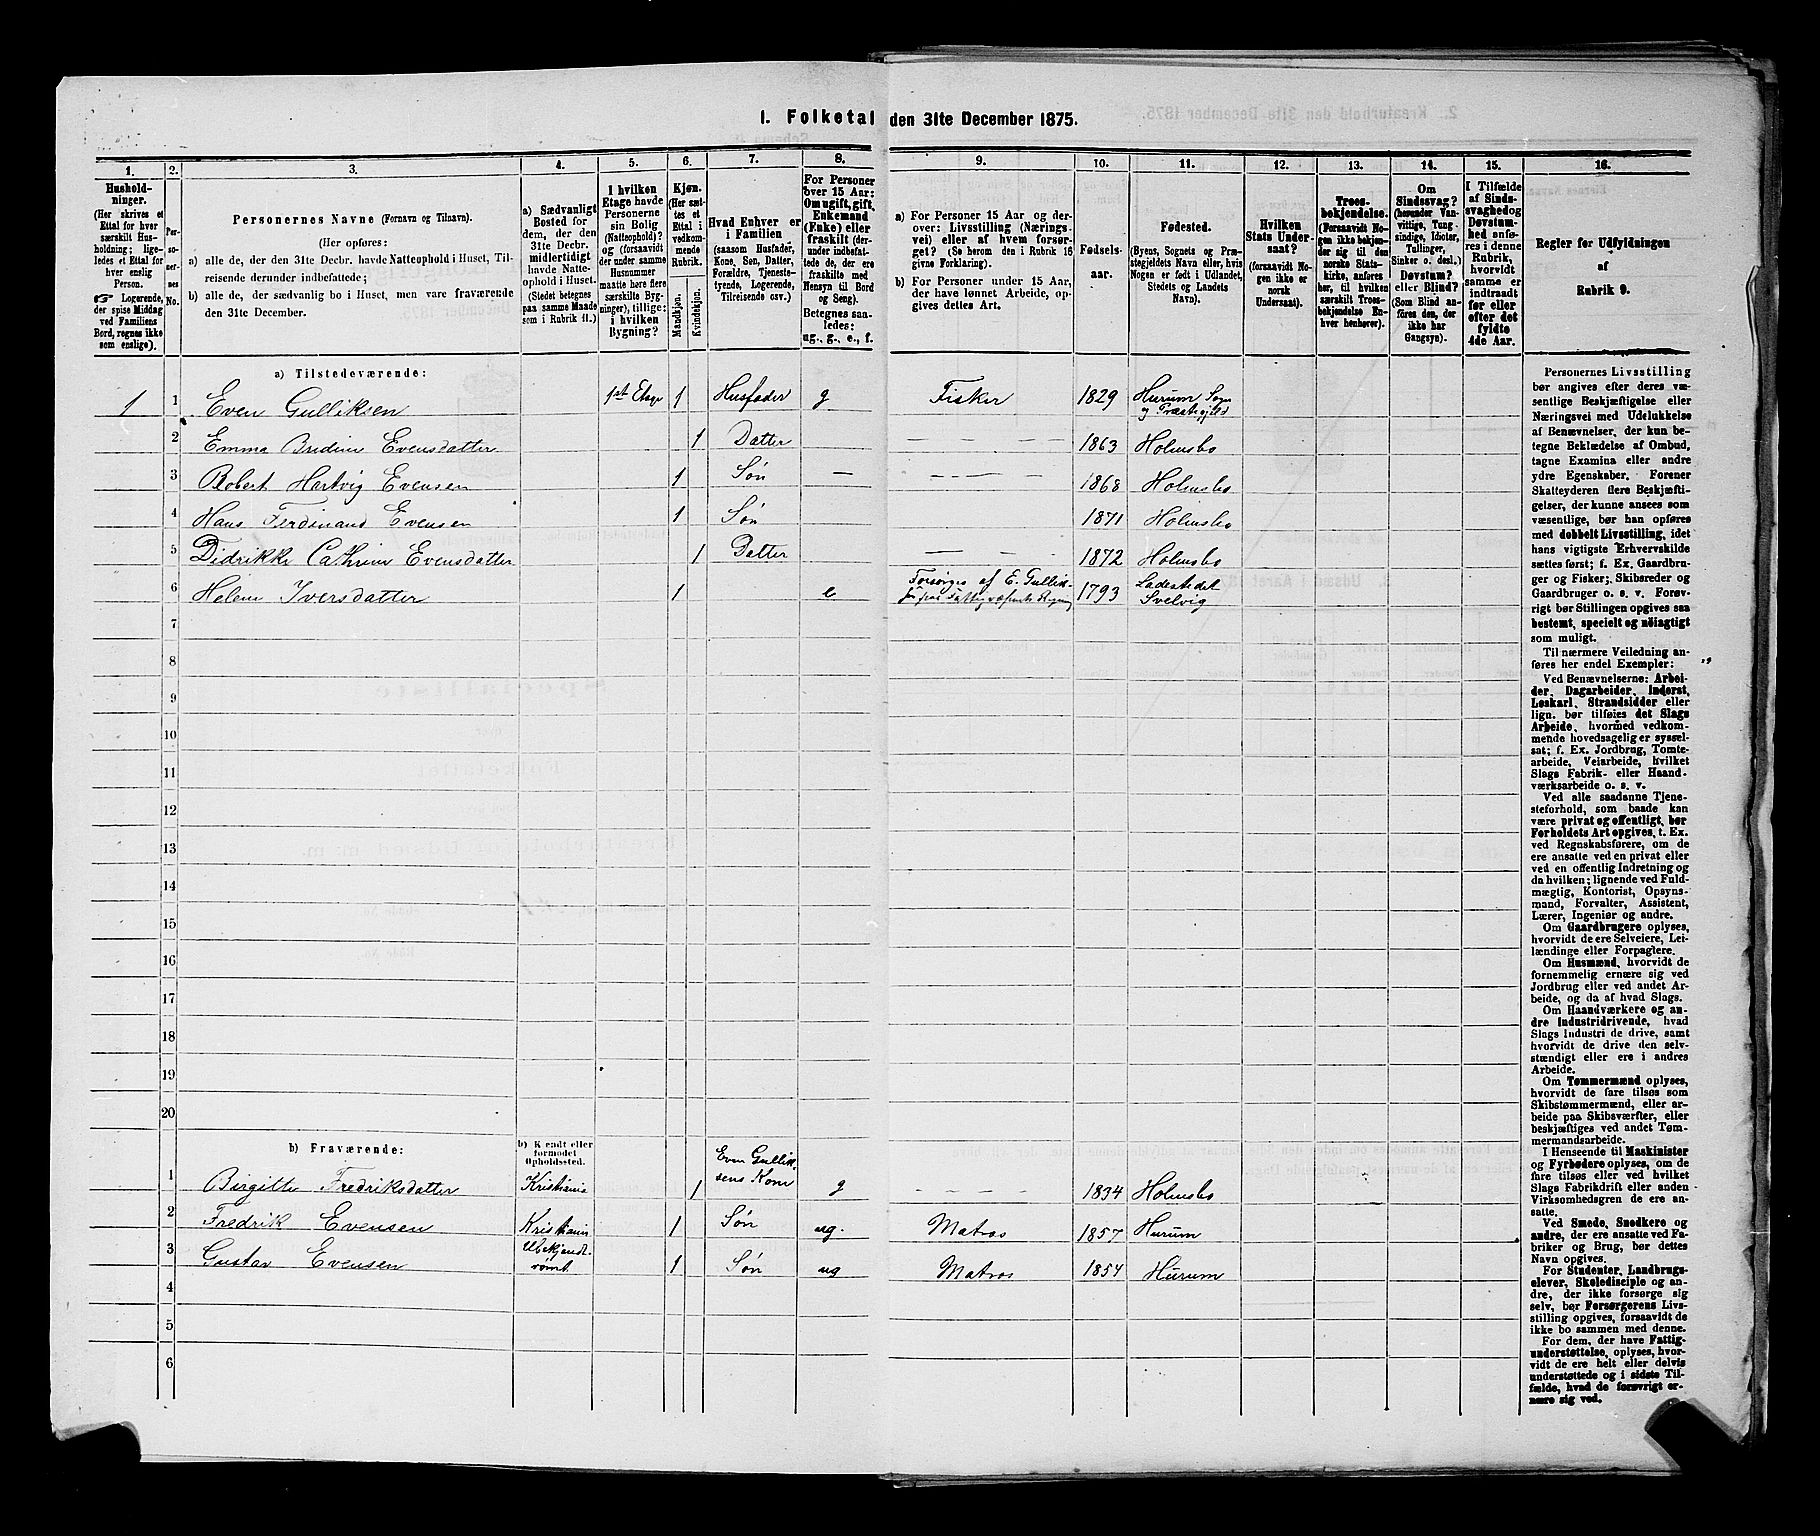 1. Folketal den 31te December 1875.
1. 2. 3. 4. 5. 6. 7. 8. 9. 10. 11. 12. 13. 14. 15. 16.
Hushold-
ninger.
(Her skrives et
Ettal for hver
særskilt Hus-
holdning; lige-
ledes et Ettal for
hver enslig
Person.
☞ Logerende,
der spise Middag
ved Familiens
Bord, regnes ikke
som enslige).
Per-
so-
ner-
nes
No.
Personernes Navne (Fornavn og Tilnavn).
(Her opføres:
a) alle de, der den 31te Decbr. havde Natteophold i Huset, Til-
reisende derunder indbefattede;
b) alle de, der sædvanlig bo i Huset, men vare fraværende
den 31te December.
a) Sædvanligt
Bosted for
dem, der den
31te Decbr.
midlertidigt
havde Natte-
ophold i Huset.
(Stedet betegnes
paa samme Maade
som i Rubrik 11.)
I hvilken
Etage havde
Personerne
sin Bolig
(Natteophold)?
og (forsaavidt
der under samme
Husnummer
maatte høre flere
særskilte Byg-
ninger), tillige:
i hvilken
Bygning?
Kjøn.
(Her sæt-
tes et
Ettal i
vedkom-
mende
Rubrik.
Mandkjøn.
Kvindekjøn.
Hvad Enhver er
i Familien
(saasom Husfader,
Kone, Søn, Datter,
Forældre, Tjeneste-
tyende, Logerende,
Tilreisende osv.)
For Personer
over 15 Aar:
Om ugift, gift,
Enkemand
(Enke) eller
fraskilt (der-
under indbefat-
tede de, der ere
fraskilte med
Hensyn til Bord
og Seng).
Betegnes saa-
ledes:
ug., g., e., f.
a) For Personer 15 Aar og der-
over: Livsstilling (Nærings-
vei) eller af hvem forsør-
get? (Se herom den i Rubrik 16
givne Forklaring).
b) For Personer under 15 Aar,
der have lønnet Arbeide, op-
gives dettes Art.
Fødsels-
aar.
Fødested.
(Byens, Sognets og Præ-
stegjeldets Navn eller, hvis
Nogen er født i Udlandet,
Stedets og Landets
Navn).
Hvilken
Stats Under-
saat?
(forsaavidt No-
gen ikke er
norsk
Undersaat).
Troes-
bekjendelse.
(Forsaavidt No-
gen ikke bekjen-
der sig til den
norske Stats-
kirke, anføres
her, til hvilken
særskilt Troes-
bekjendelse En-
hver henhører).
Om
Sindssvag?
(herunder Van-
vittige, Tung-
sindige, Idioter,
Tullinger,
Sinker o. desl.)
Døvstum?
eller Blind?
(Som Blind an-
føres den, der
ikke har
Gangsyn).
I Tilfælde
af Sinds-
svaghed og
Døvstum-
hed anfø-
res i denne
Rubrik,
hvorvidt
samme er
indtraadt
før eller
efter det
fyldte
4de Aar.
Regler for Udfyldningen
af
Rubrik 9.
a) Tilstedeværende:
1 1 Even Gulliksen 1st Etage 1 Husfader g Fisker 1829 Hurum Sogn
og Præstegjeld
2 Emma Bredine Evensdatter 1 Datter — — — 1863 Holmsbo
3 Robert Hartvig Evensen 1 Søn — — — — 1868 Holmsbo
4 Hans Ferdinand Evensen 1 Søn 1871 Holmsbo
5 Didrikke Cathrine Evensdatter 1 Datter — — 1872 Holmsbo
6 Helene Iversdatter 1 e Forsørges af E. Gullik- 1793 Ladestedet
Svelvig
7
8
9
10
11
12
13
14
15
16
17
18
19
20
b) Fraværende:
b) Kjendt eller
formodet
Opholdssted.
1 Birgitte Fredriksdatter Kristiania 1 Even Gullik-
sens Kone g — — — 1834 Holmsbo
2 Fredrik Evensen Kristiania 1 Søn ug. Matros 1857 Hurum
3 Gustav Evensen Ubekjendt- 1 Søn ug Matros 1854 Hurum
4
5
6
Personernes Livsstilling
bør angives efter deres væ-
sentlige Beskjæftigelse eller
Næringsvei med Udelukkelse
af Benævnelser, der kun be-
tegne Beklædelse af Ombud,
tagne Examina eller andre
ydre Egenskaber. Forener
Skatteyderen flere Beskjæfti-
gelser, der kunne ansees som
væsentlige, bør han opføres
med dobbelt Livsstilling, idet
hans vigtigste Erhvervskilde
sættes først; f. Ex. Gaardbru-
ger og Fisker; Skibsreder og
Gaardbruger o. s. v. Forøv-
rigt bør Stillingen opgives saa
bestemt, specielt og nøiagtigt
som muligt.
Til nærmere Veiledning an-
føres her endel Exempler:
Ved Benævnelserne: Arbei-
der, Dagarbeider, Inderst,
Løskarl, Strandsidder eller
lign. bør tilføies det Slags
Arbeide, hvormed vedkom-
mende hovedsagelig er syssel-
sat; f. Ex. Jordbrug, Tomte-
arbeide, Veiarbeide, hvilket
Slags Fabrik- eller Haand-
værksarbeide o. s. v.
Ved alle saadanne Tjene-
steforhold, som baade kan
være privat og offentligt, bør
Forholdets Art opgives, t. Ex.
ved Regnskabsførere, om de
ere ansatte ved en privat eller
ved en offentlig Indretning og
da hvilken; lignende ved Fuld-
mægtig, Kontorist, Opsyns-
mand, Forvalter, Assistent,
Lærer, Ingeniør og andre.
Om Gaardbrugere oplyses,
hvorvidt de ere Selveiere, Lei-
lændinge eller Forpagtere.
Om Husmænd, hvorvidt de
fornemmelig ernære sig ved
Jordbrug eller ved andet Ar-
beide, og da af hvad Slags.
Om Haandværkere og an-
dre Industridrivende, hvad
Slags Industri de drive, samt
hvorvidt de drive den selv-
stændigt eller ere i andres
Arbeide.
Om Tømmermænd oplyses,
hvorvidt de fare tilsøs som
Skibstømmermænd, eller ar-
beide paa Skibsværfter, eller
beskjæftiges ved andet Tøm-
mermandsarbeide.
I Henseende til Maskinister
og Fyrbødere oplyses, om de
fare tilsøs eller ved hvilket
Slags Fabrikdrift eller anden
Virksomhedsgren de ere an-
satte.
Ved Smede, Snedkere og
andre, der ere ansatte ved Fa-
briker og Brug, bør dettes
Navn opgives.
For Studenter, Landbrugs-
elever, Skoledisciple og an-
dre, der ikke forsørge sig
selv, bør Forsørgerens Livs-
stilling opgives, forsaavidt de
ikke bo sammen med denne.
For dem, der have Fattig-
understøttelse, oplyses, hvor-
vidt de ere helt eller delvis
understøttede og i sidste Til-
fælde, hvad de forøvrigt er-
nære sig ved.